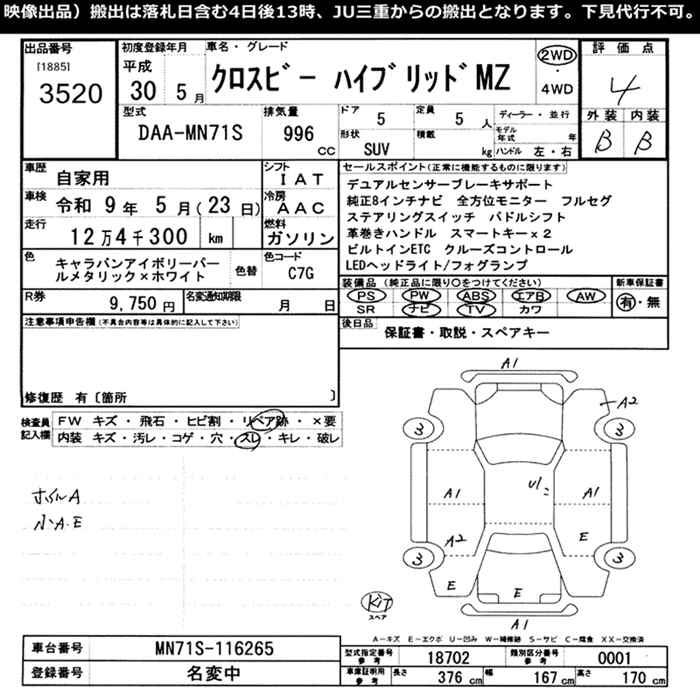 映像出品）搬出は落札日含む4日後13時、JU三重からの搬出となります。下見代行不可。
出品番号
[1885]
3520
初度登録年月
平成
30 5月
車名・グレード
クロスビー ハイブリッドMZ
2WD
・
4WD
評価点
4
外装 内装
β β
型式
DAA-MN71S
排気量
996
CC
ドア
5
定員
5 人
形状
SUV
積載
kg
ディーラー・並行
モデル年式 年
ハンドル 左・右
車歴
自家用
シフト
IAT
車検
令和 9年 5月(23日)
冷房
AAC
走行
12万4千300 km
燃料
ガソリン
色
キャラバンアイボリーパー
ルメタリック×ホワイト
色替
色コード
C7G
R券
9,750円
名変通知期限
月 日
セールスポイント(正常に機能するものに限ります)
デュアルセンサーブレーキサポート
純正8インチナビ 全方位モニター フルセグ
ステアリングスイッチ パドルシフト
革巻きハンドル スマートキーx2
ビルトインETC クルーズコントロール
LEDヘッドライト/フォグランプ
装備品(純正品に限り○をつけてください)
PS PW ABS エアB AW
SR ナビ TV カワ
新車保証書
有・無
後日品
保証書・取説・スペアキー
注意事項申告欄(不具合内容等は具体的に記入して下さい)
修復歴 有〔箇所 〕
検査員
記入欄
FW キズ・飛石・ヒビ割・リペア跡・×要
内装 キズ・汚レ・コゲ・穴・スレ・キレ・破レ
小A・E
A1
A2
3 3
A1 A1
A2
E
3 3
E E
A1
KIT
スペア
A－キズ E－エクボ U－凹み W－補修跡 S－サビ C－腐食 XX－交換済
車台番号
MN71S-116265
登録番号
名変中
型式指定番号
参考
18702
類別区分番号
参考
0001
車庫証明用
参考
長さ
376 cm
幅
167 cm
高さ
170 cm